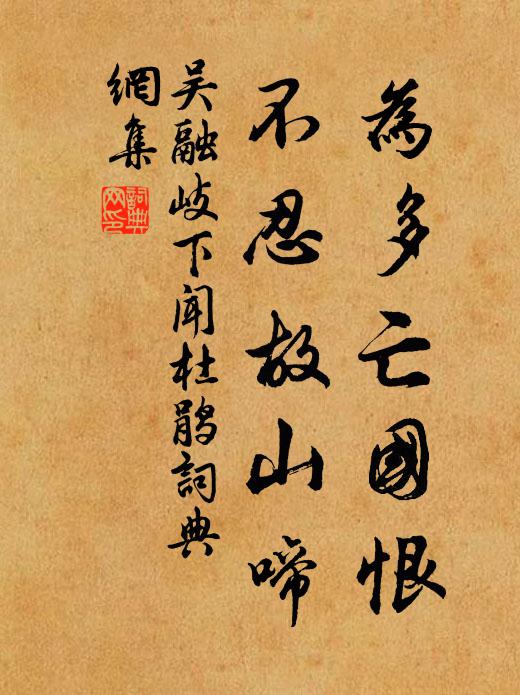 為多亡國恨
不忍故山啼
吳融岐下闻杜鹃詞典
網集
詞典
网印